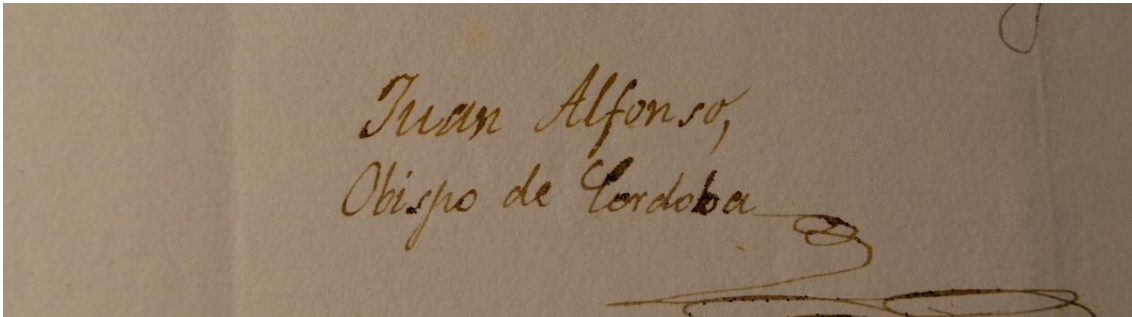 Juan Alfonso,
Obispo de Cordoba